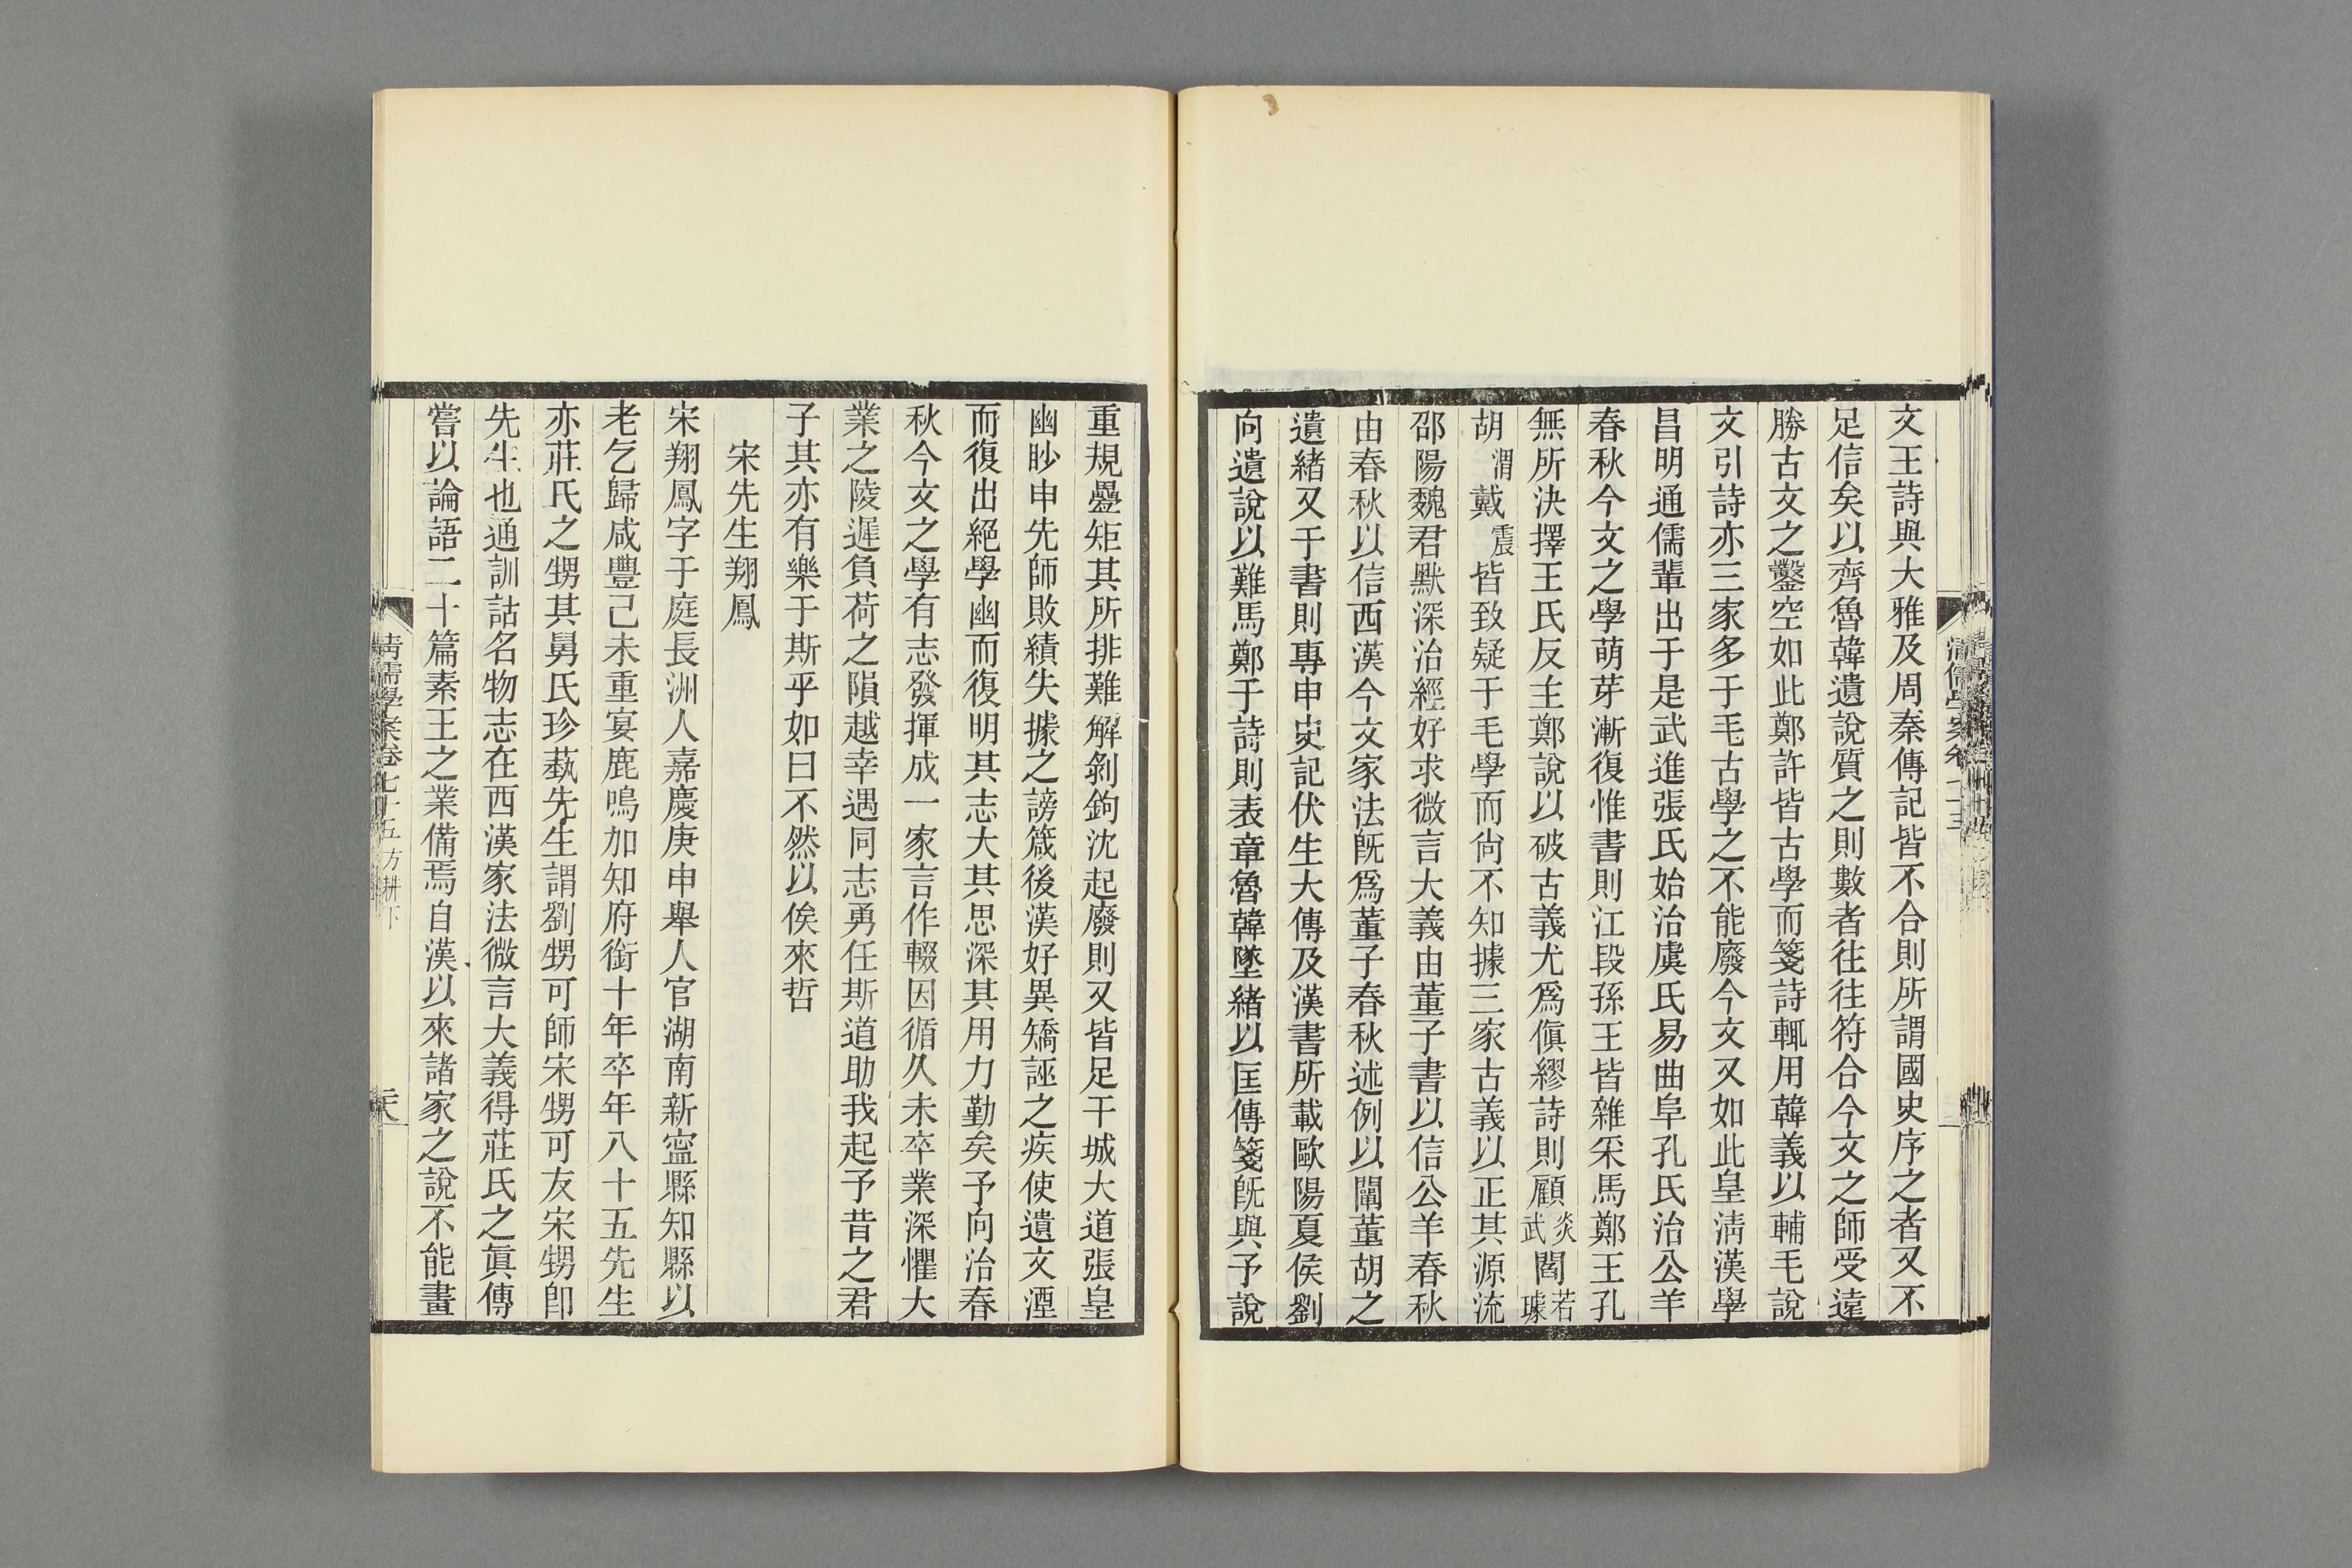 文王詩與大雅及周秦傳記皆不合則所謂國史序之者又不
足信矣以齊魯韓遺說質之則數者往往符合今文之師受遠
勝古文之鑿空如此鄭許皆古學而箋詩輒用韓義以輔毛說
文引詩亦三家多于毛古學之不能廢今文又如此皇淸漢學
昌明通儒輩出于是武進張氏始治虞氏易曲阜孔氏治公羊
春秋今文之學萌芽漸復惟書則江段孫王皆雜采馬鄭王孔
無所決擇王氏反主鄭說以破古義尤爲傎繆詩則顧炎武閻若璩
胡渭戴震皆致疑于毛學而尙不知據三家古義以正其源流
邵陽魏君默深治經好求微言大義由董子書以信公羊春秋
由春秋以信西漢今文家法旣爲董子春秋述例以闡董胡之
遺緒又于書則專申史記伏生大傳及漢書所載歐陽夏侯劉
向遺說以難馬鄭于詩則表章魯韓墜緒以匡傳箋旣與予說
重規疊矩其所排難解剝鉤沈起廢則又皆足干城大道張皇
幽眇申先師敗績失據之謗箴後漢好異矯誣之疾使遺文湮
而復出絕學幽而復明其志大其思深其用力勤矣予向治春
秋今文之學有志發揮成一家言作輟因循久未卒業深懼大
業之陵遲負荷之隕越幸遇同志勇任斯道助我起予昔之君
子其亦有樂于斯乎如曰不然以俟來哲
宋先生翔鳳
宋翔鳳字于庭長洲人嘉慶庚申舉人官湖南新甯縣知縣以
老乞歸咸豐己未重宴鹿鳴加知府銜十年卒年八十五先生
亦莊氏之甥其舅氏珍蓺先生謂劉甥可師宋甥可友宋甥卽
先生也通訓詁名物志在西漢家法微言大義得莊氏之眞傳
嘗以論語二十篇素王之業備焉自漢以來諸家之說不能畫
淸儒學案卷七十五 方耕下